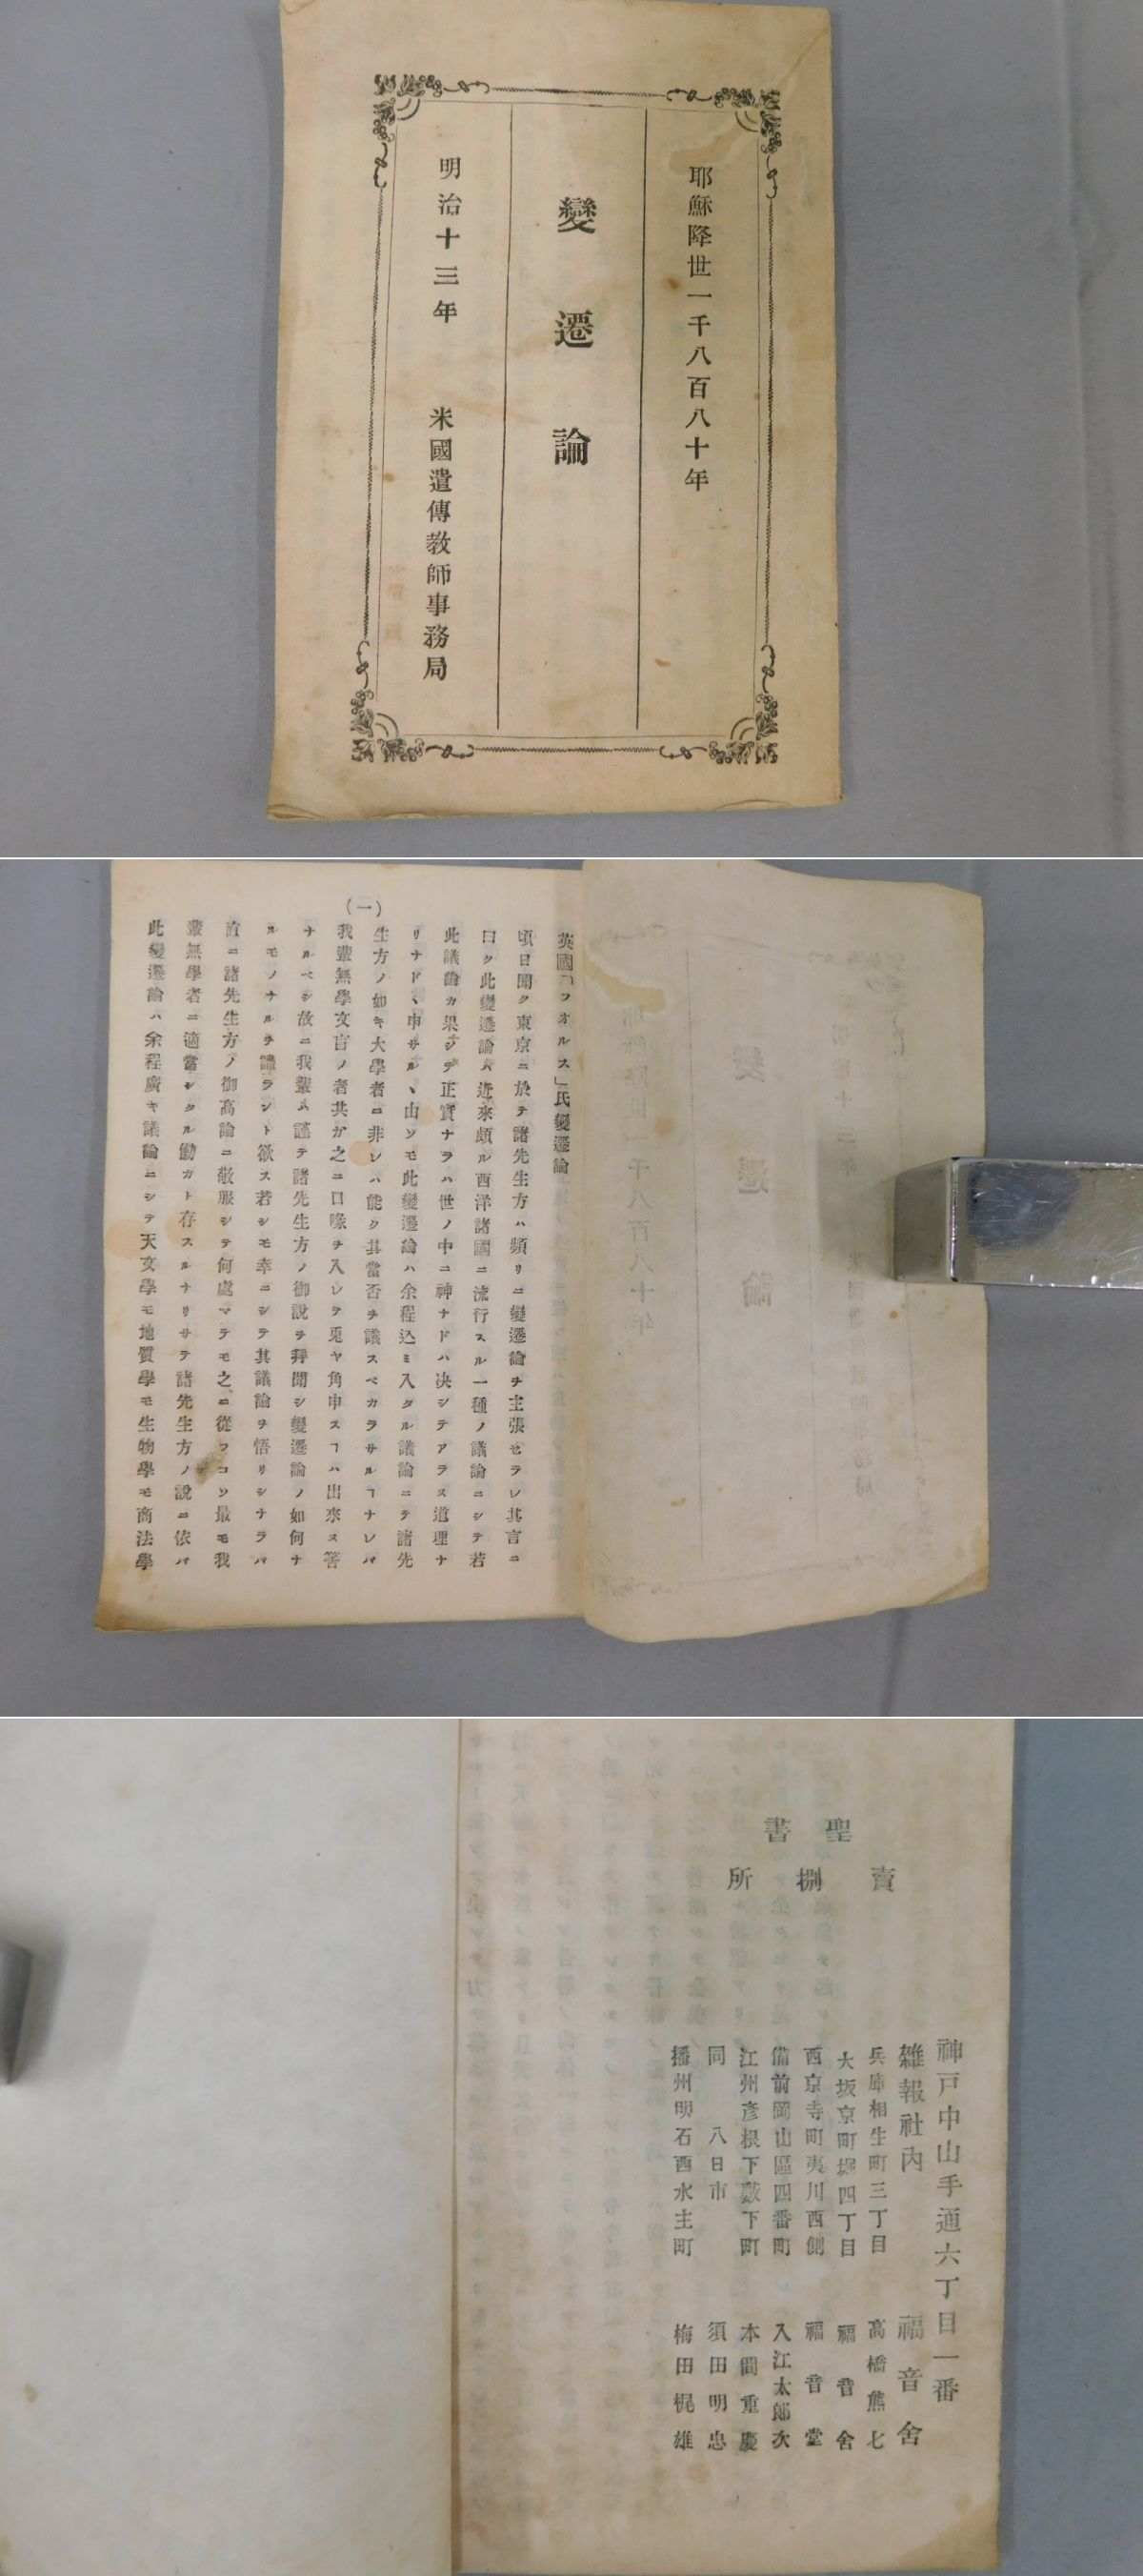 耶蘇降世一千八百八十年
變遷論
明治十三年 米國遣傳敎師事務局
英國「フオルス」氏變遷論
頃日聞ク東京ニ於テ諸先生方ハ頻リニ變遷論ヲ主張セラレ其言ニ
曰ク此變遷論ハ近來頗ル西洋諸國ニ流行スル一種ノ議論ニシテ若
此議論カ果シテ正實ナラハ世ノ中ニ神ナドハ决シテアラス道理ナ
リナド、申サル、由ソモ此變遷論ハ余程込ミ入タル議論ニテ諸先
生方ノ如キ大學者ニ非レハ能ク其當否ヲ議スベカラサルヿナレバ
我輩無學文盲ノ者共ガ之ニ口喙ヲ入レテ兎ヤ角申スヿハ出來ス筈
ナルベシ故ニ我輩ハ謹テ諸先生方ノ御說ヲ拜聞シ變遷論ノ如何ナ
ルモノナルヲ識ラント欲ス若シモ幸ニシテ其議論ヲ悟リシナラバ
直ニ諸先生方ノ御高論ニ敬服シテ何處マテモ之ニ從フコソ最モ我
輩無學者ニ適當シタル働カト存スルナリサテ諸先生方ノ說ニ依バ
此變遷論ハ余程廣キ議論ニシテ天文學モ地質學モ生物學モ商法學
(一)
聖書
賣捌所
神戶中山手通六丁目一番
雜報社內 福音舍
兵庫相生町三丁目 高橋熊七
大坂京町堀四丁目 福音舍
西京寺町夷川西側 福音堂
備前岡山區四番町 入江太郎次
江州彥根下藪下町 本間重慶
同 八日市 須田明忠
播州明石西水主町 梅田梶雄